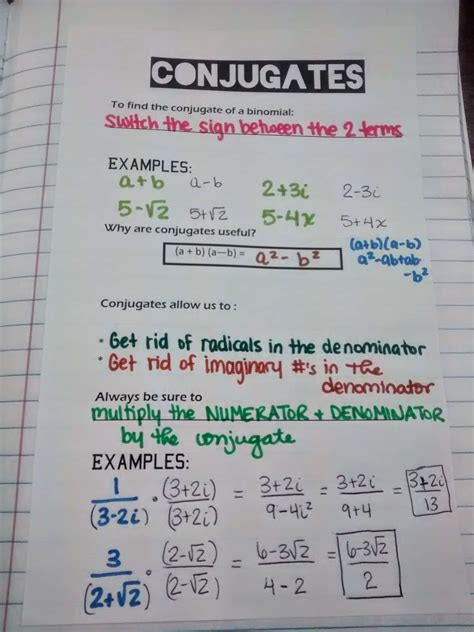 CONJUGATES
To find the conjugate of a binomial:
Switch the sign between the 2 terms
EXAMPLES:
a+b a-b 2+3i 2-3i
5-√2 5+√2 5-4x 5+4x
Why are conjugates useful?
(a + b) (a—b) = a² - b²
(a+b)(a-b)
a²-ab+ab
-b²
Conjugates allow us to :
• Get rid of radicals in the denominator
• Get rid of imaginary #'s in the
denominator
Always be sure to
multiply the NUMERATOR + DENOMINATOR
by the conjugate
EXAMPLES:
1/(3-2i) · (3+2i)/(3+2i) = 3+2i/9-4i² = 3+2i/9+4 = 3+2i/13
3/(2+√2) · (2-√2)/(2-√2) = 6-3√2/4-2 = 6-3√2/2